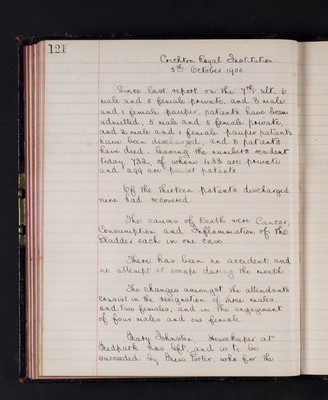 121
Crichton Royal Institution
5th October 1900
Since last report on the 7th ult. 6
male and 8 female private, and 3 male
and 1 female pauper, patients have been
admitted, 5 male and 5 female private,
and 2 male and 1 female pauper patients
have been discharged, and 3 patients
have died, leaving the numbers resident
today 732, of whom 433 are private
and 299 are pauper patients.
Of the thirteen patients discharged
nine had recovered.
The causes of Death were Cancer,
Consumption and Inflammation of the
Bladder each in one case.
There has been no accident and
no attempt at escape during the month
The changes amongst the attendants
consist in the resignation of three males
and two females, and in the engagement
of four males and one female.
Mary Johnston, Housekeeper at
Midpark has left and is to be
succeeded by Miss Porter, who for the